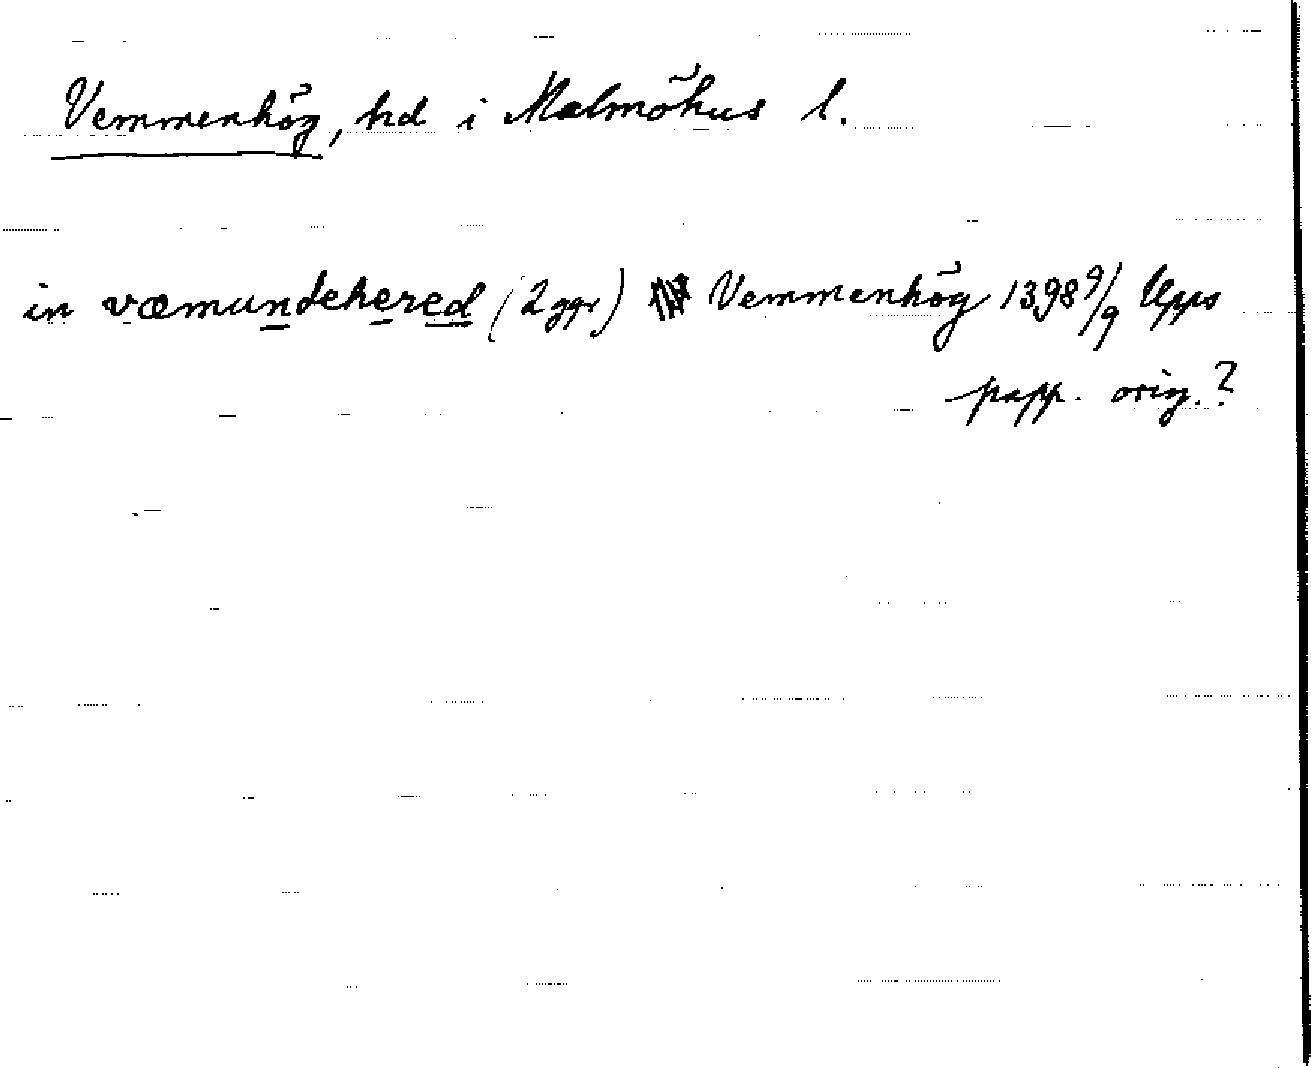 Vemmenhög, hd i Malmöhus l.
in væmundehered (2 ggr) Vemmenhög 1398 9/9 Upps
papp. orig.?